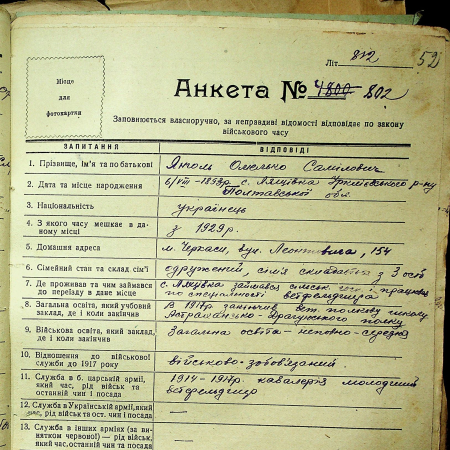 Літ. 802
52
Місце
для
фотокартки
Анкета № 4800 802
Заповнюється власноручно, за неправдиві відомості відповідає по закону
військового часу
ЗАПИТАННЯ ВІДПОВІДІ
1. Прізвище, ім'я та по батькові Омелько Самілович
2. Дата та місце народження 6/VIII-1893р. с. р-ну
Полтавської обл
3. Національність українець
4. З якого часу мешкає в да-
ному місці з 1929р.
5. Домашня адреса м. Черкаси, вул. 154
6. Сімейний стан та склад сім'ї одружений, сім'я складається з 3 осіб
7. Де проживав та чим займався
до переїзду в дане місце по спеціальності ветфельдшера
8. Загальна освіта, який учбовий
заклад, де і коли закінчив В 1917р закінчив вет. полкову школу
полку
9. Військова освіта, який заклад,
де і коли закінчив Загальна освіта - неповно-середня
10. Відношення до військової
служби до 1917 року військово-зобов'язаний
11. Служба в б. царській армії,
який час, рід військ та
останній чин і посада 1914-1917р. кавалерія молодший
ветфельдшер
12. Служба в Українській армії, який
час, рід військ та ост. чин і посада —
13. Служба в інших арміях (за ви-
нятком червоної) — рід військ,
який час, останній чин та посада —